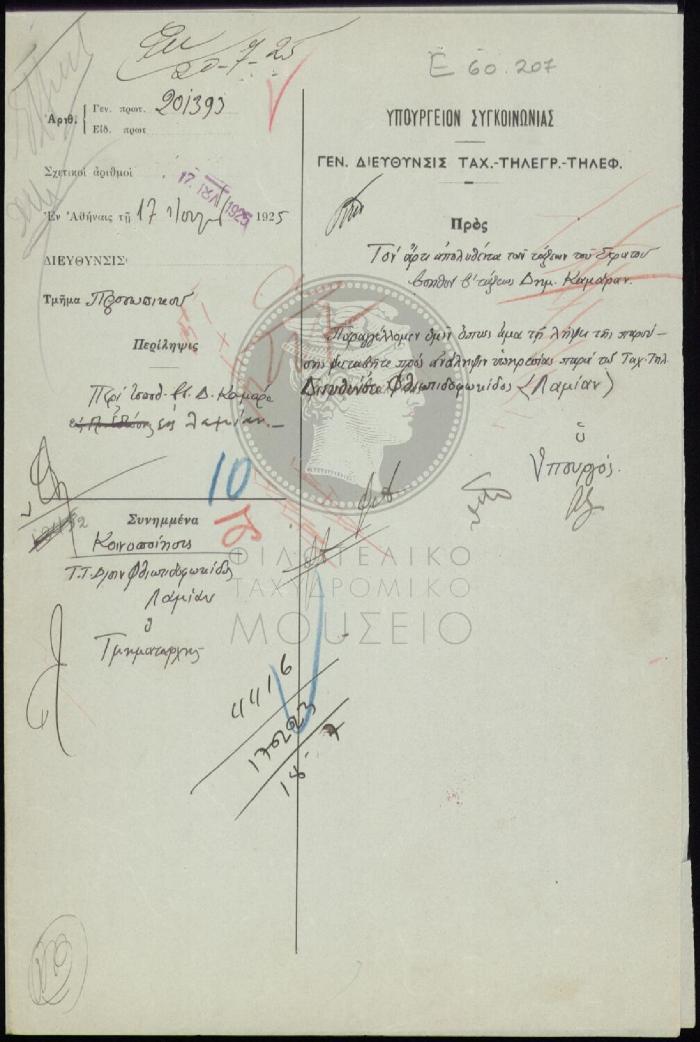 20-7-25
Ε 60.207
Ἀριθ.
Γεν. πρωτ. 201393
Εἰδ. πρωτ
Σχετικοὶ ἀριθμοί
17. ΙΟΥΛ 1925
Ἐν Ἀθήναις τῇ 17 Ἰουλίου 1925
ΔΙΕΥΘΥΝΣΙΣ
Τμῆμα Προσωπικοῦ
Περίληψις
Περὶ Δ. Καμάρα
εἰς Λαμίαν.
10
Συνημμένα
Κοινοποίησις
Τ.Τ. Δ)σιν Φθιωτιδοφωκίδος
Λαμίαν
ὁ
Τμηματάρχης
ΥΠΟΥΡΓΕΙΟΝ ΣΥΓΚΟΙΝΩΝΙΑΣ
ΓΕΝ. ΔΙΕΥΘΥΝΣΙΣ ΤΑΧ.-ΤΗΛΕΓΡ.-ΤΗΛΕΦ.
Πρὸς
Τὸν ἄρτι ἀπολυθέντα τῶν τάξεων τοῦ Στρατοῦ
βοηθὸν β' τάξεως Δημ. Καμάραν.
Παραγγέλλομεν ὑμῖν ὅπως ἅμα τῇ λήψει τῆς παρού-
σης μεταβῆτε πρὸς ἀνάληψιν ὑπηρεσίας παρὰ τῇ Ταχ. Τηλ.
Διευθύνσει Φθιωτιδοφωκίδος (Λαμίαν)
ὁ
Ὑπουργός.
ΦΙΛΟΤΕΛΙΚΟ
ΤΑΧΥΔΡΟΜΙΚΟ
ΜΟΥΣΕΙΟ
4416
18 7